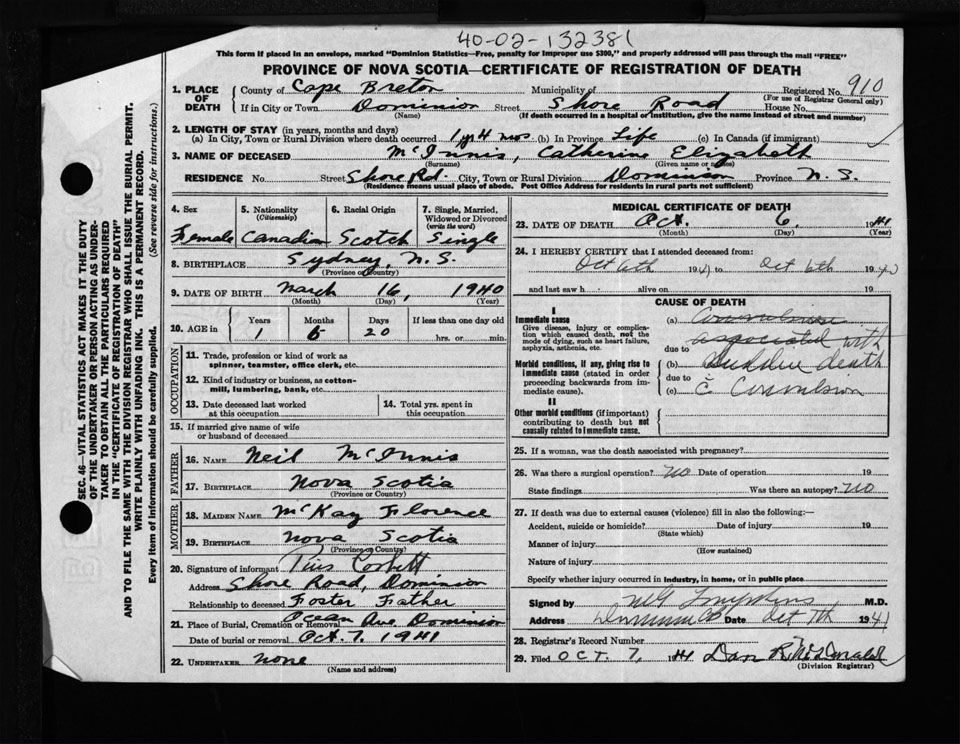 40-02-132381
This form if placed in an envelope, marked "Dominion Statistics—Free, penalty for improper use $300," and properly addressed will pass through the mail "FREE"
PROVINCE OF NOVA SCOTIA—CERTIFICATE OF REGISTRATION OF DEATH
1. PLACE OF DEATH
County of Cape Breton Municipality of Registered No. 910
(For use of Registrar General only)
If in City or Town Dominion Street Shore Road House No.
(Name) (If death occurred in a hospital or institution, give the name instead of street and number)
2. LENGTH OF STAY (in years, months and days)
(a) In City, Town or Rural Division where death occurred 1 y 4 mos. (b) In Province Life (c) In Canada (if immigrant)
3. NAME OF DECEASED McInnis, Catherine Elizabeth
(Surname) (Given name or names)
RESIDENCE No. Street Shore Rd. City, Town or Rural Division Dominion Province N.S.
(Residence means usual place of abode. Post Office Address for residents in rural parts not sufficient)
4. Sex
Female
5. Nationality
(Citizenship)
Canadian
6. Racial Origin
Scotch
7. Single, Married, Widowed or Divorced
(write the word)
Single
8. BIRTHPLACE Sydney, N.S.
(Province or Country)
9. DATE OF BIRTH March 16, 1940
(Month) (Day) (Year)
10. AGE in
Years Months Days If less than one day old
1 6 20 hrs. or min.
OCCUPATION
11. Trade, profession or kind of work as spinner, teamster, office clerk, etc.
12. Kind of industry or business, as cotton-mill, lumbering, bank, etc.
13. Date deceased last worked at this occupation
14. Total yrs. spent in this occupation
15. If married give name of wife or husband of deceased
FATHER
16. NAME Neil McInnis
17. BIRTHPLACE Nova Scotia
(Province or Country)
MOTHER
18. MAIDEN NAME McKay Florence
19. BIRTHPLACE Nova Scotia
(Province or Country)
20. Signature of informant Pius Corbett
Address Shore Road, Dominion
Relationship to deceased Foster Father
21. Place of Burial, Cremation or Removal Ocean Ave. Dominion
Date of burial or removal Oct. 7. 1941
22. UNDERTAKER none
(Name and address)
MEDICAL CERTIFICATE OF DEATH
23. DATE OF DEATH Oct. 6, 1941
(Month) (Day) (Year)
24. I HEREBY CERTIFY that I attended deceased from:
Oct 6th 1941 to Oct 6th 194
and last saw h alive on 19
CAUSE OF DEATH
I
Immediate cause
Give disease, injury or complication which caused death, not the mode of dying, such as heart failure, asphyxia, asthenia, etc.
Morbid conditions, if any, giving rise to immediate cause (stated in order proceeding backwards from immediate cause).
II
Other morbid conditions (if important) contributing to death but not causally related to immediate cause.
(a)
due to associated with
(b) Sudden death
due to
(c) c
25. If a woman, was the death associated with pregnancy?
26. Was there a surgical operation? No Date of operation 19
State findings Was there an autopsy? No
27. If death was due to external causes (violence) fill in also the following:—
Accident, suicide or homicide? Date of injury 19
(State which)
Manner of injury
(How sustained)
Nature of injury
Specify whether injury occurred in industry, in home, or in public place
Signed by M.D.
Address Dominion CB Date Oct 7th 1941
28. Registrar's Record Number
29. Filed OCT. 7, 1941 Dan R. McDonald
(Division Registrar)
SEC. 46—VITAL STATISTICS ACT MAKES IT THE DUTY
OF THE UNDERTAKER OR PERSON ACTING AS UNDER-
TAKER TO OBTAIN ALL THE PARTICULARS REQUIRED
IN THE "CERTIFICATE OF REGISTRATION OF DEATH"
AND TO FILE THE SAME WITH THE DIVISION REGISTRAR WHO SHALL ISSUE THE BURIAL PERMIT.
WRITE PLAINLY WITH UNFADING INK. THIS IS A PERMANENT RECORD.
Every item of information should be carefully supplied. (See reverse side for instructions.)